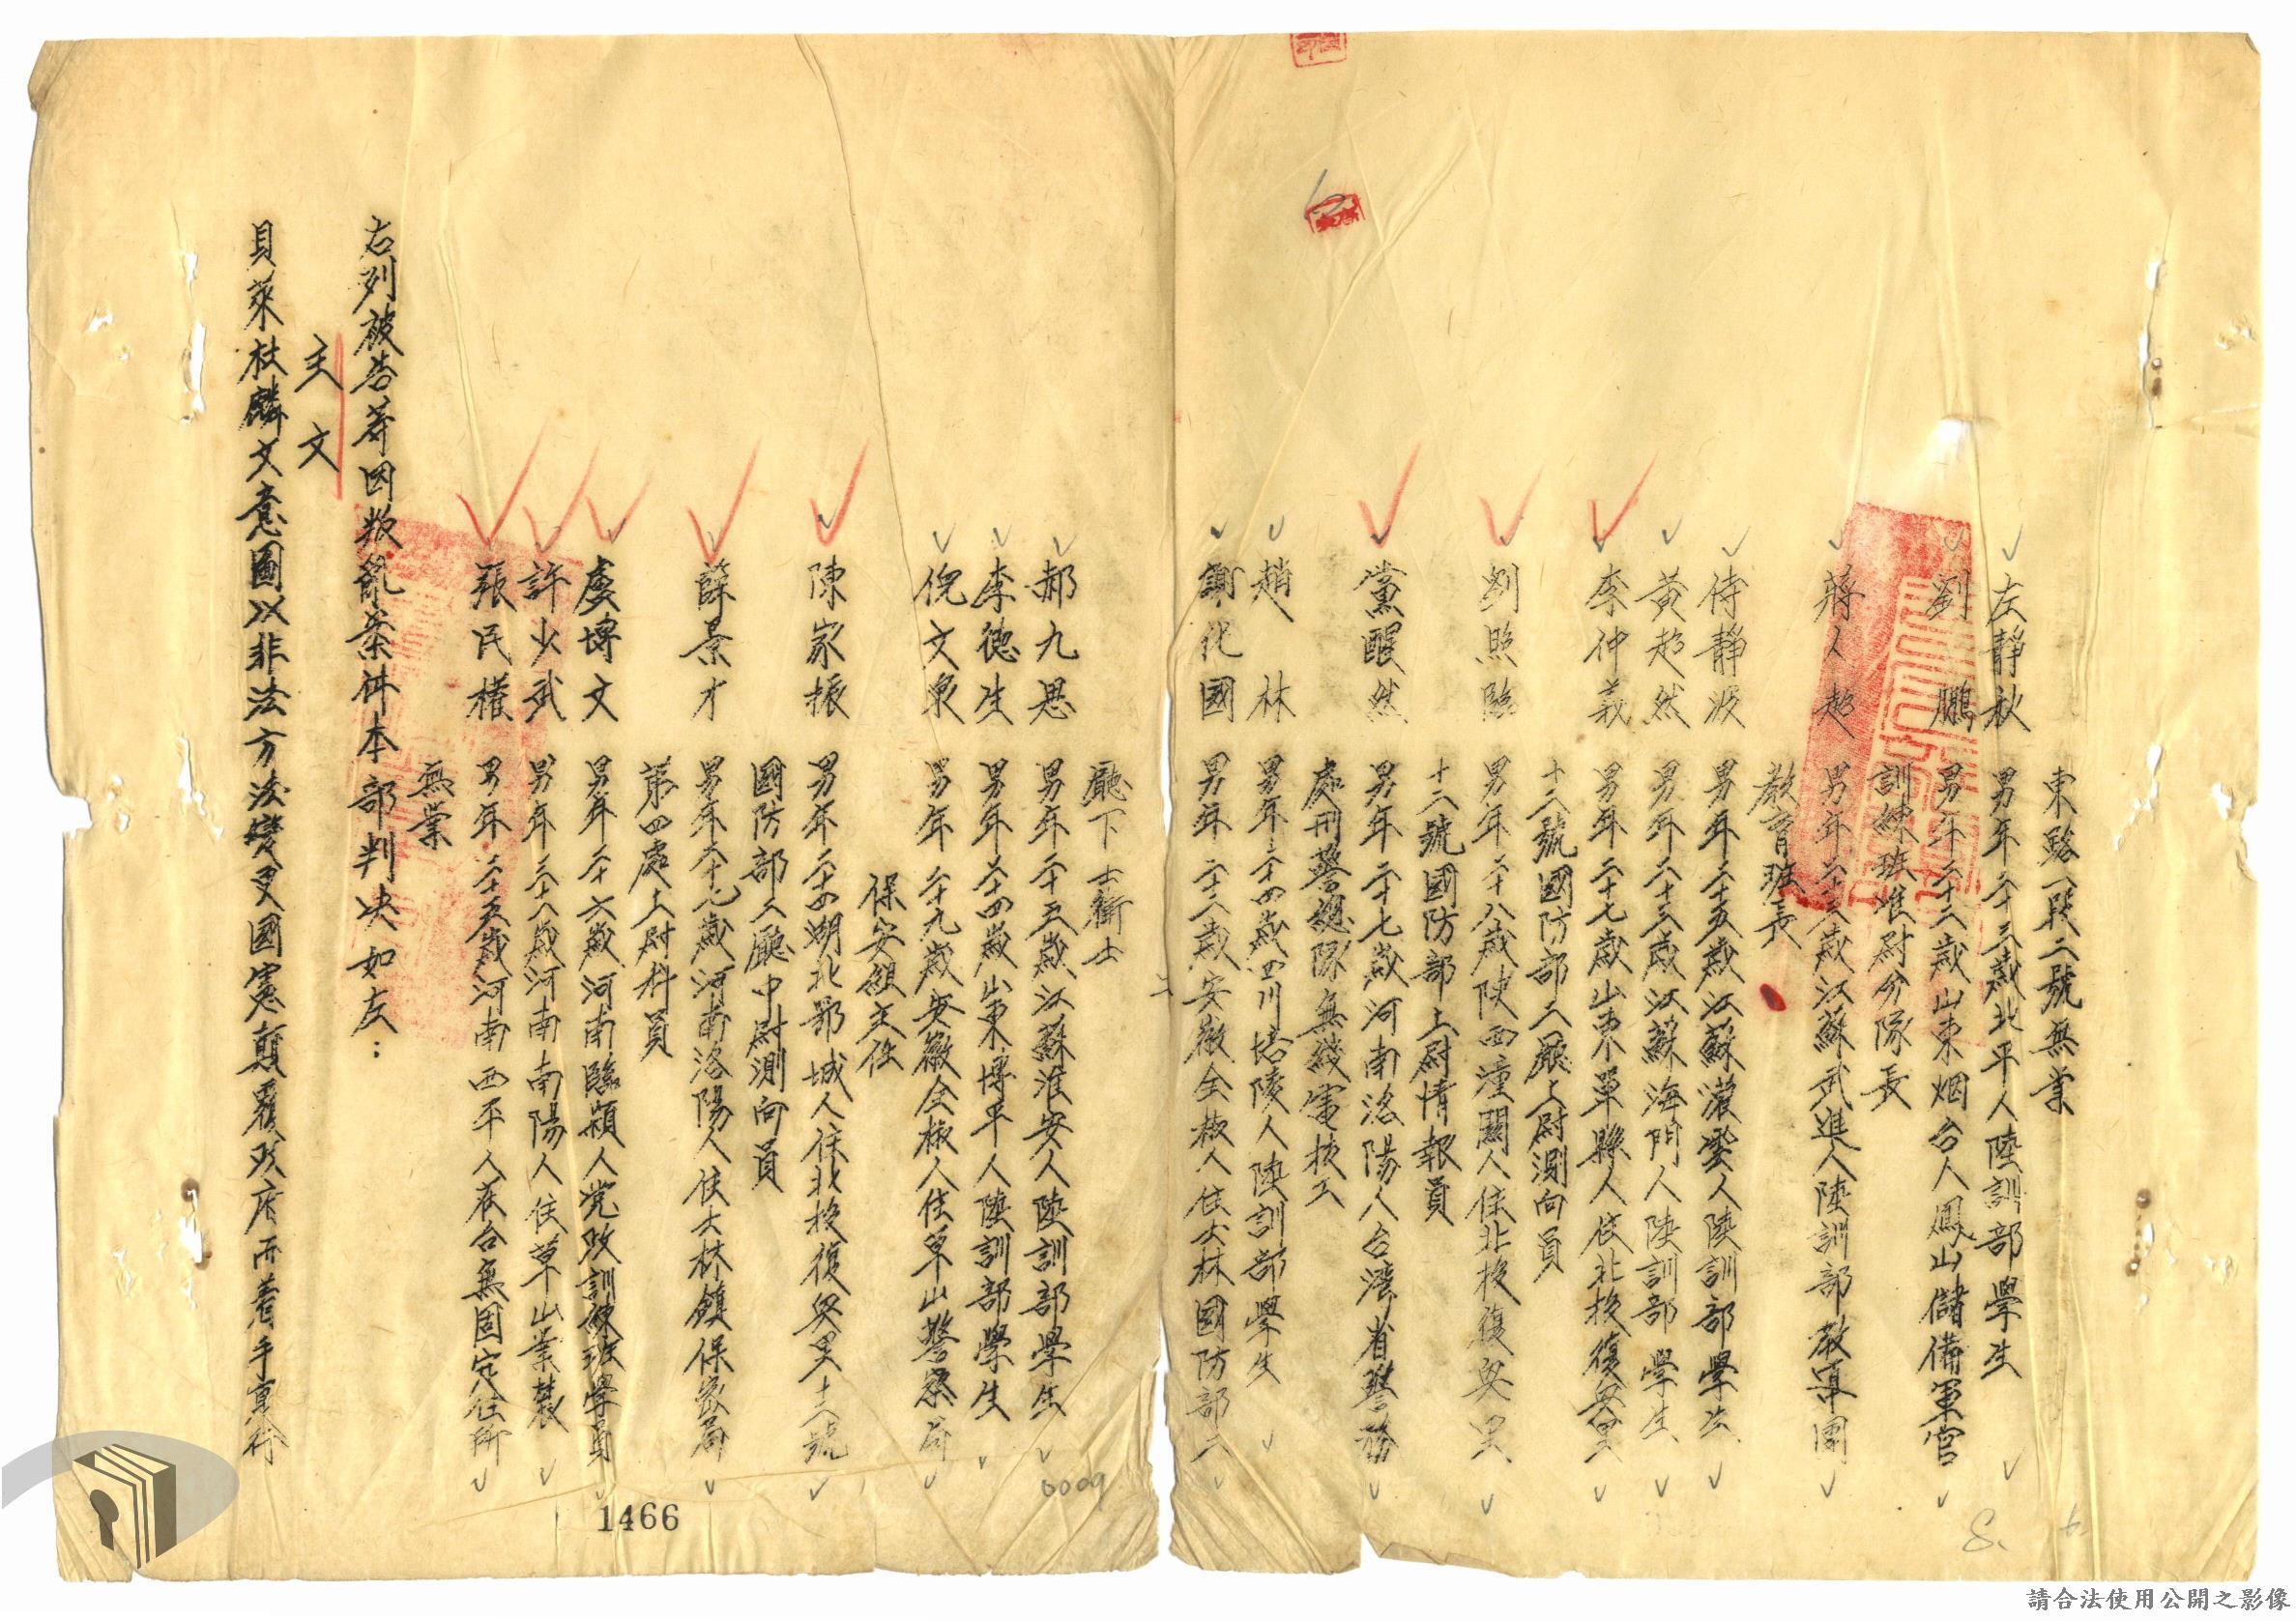 東路一段二號無業
左靜秋 男年二十三歲北平人陸訓部學生
劉鵬 男年二十三歲山東烟台人鳳山儲備軍官
訓練班准尉分隊長
蔣人超 男年二十三歲江蘇武進人陸訓部教導團
教育班長
侍靜波 男年二十五歲江蘇灌雲人陸訓部學生
黃超然 男年二十三歲江蘇海門人陸訓部學生
李仲義 男年二十七歲山東單縣人住北投復興里
十二號國防部二廳上尉測向員
劉照臨 男年二十八歲陝西潼關人住北投復興里
十二號國防部上尉情報員
黨醒然 男年二十七歲河南洛陽人台灣省警務
處刑警總隊無綫電技工
趙林 男年二十四歲四川涪陵人陸訓部學生
謝化國 男年二十二歲安徽全椒人住士林國防部二
廳下士衛士
郝九思 男年二十五歲江蘇淮安人陸訓部學生
李德生 男年二十四歲山東博平人陸訓部學生
倪文泉 男年二十九歲安徽全椒人住草山警察局
保安組主任
陳家振 男年二十四湖北鄂城人住北投復興里十二號
國防部二廳中尉測向員
薛景才 男年二十九歲河南洛陽人住士林鎮保密局
第四處上尉科員
虞博文 男年二十六歲河南臨潁人党政訓練班學員
許少武 男年三十八歲河南南陽人住草山業農
張民權 男年二十五歲河南西平人在台無固定住所
無業
右列被告等因叛亂案件本部判决如左：
主文
貝萊杖麟文意圖以非法方法變更國憲顛覆政府而着手實行
1466
0009
8.
請合法使用公開之影像